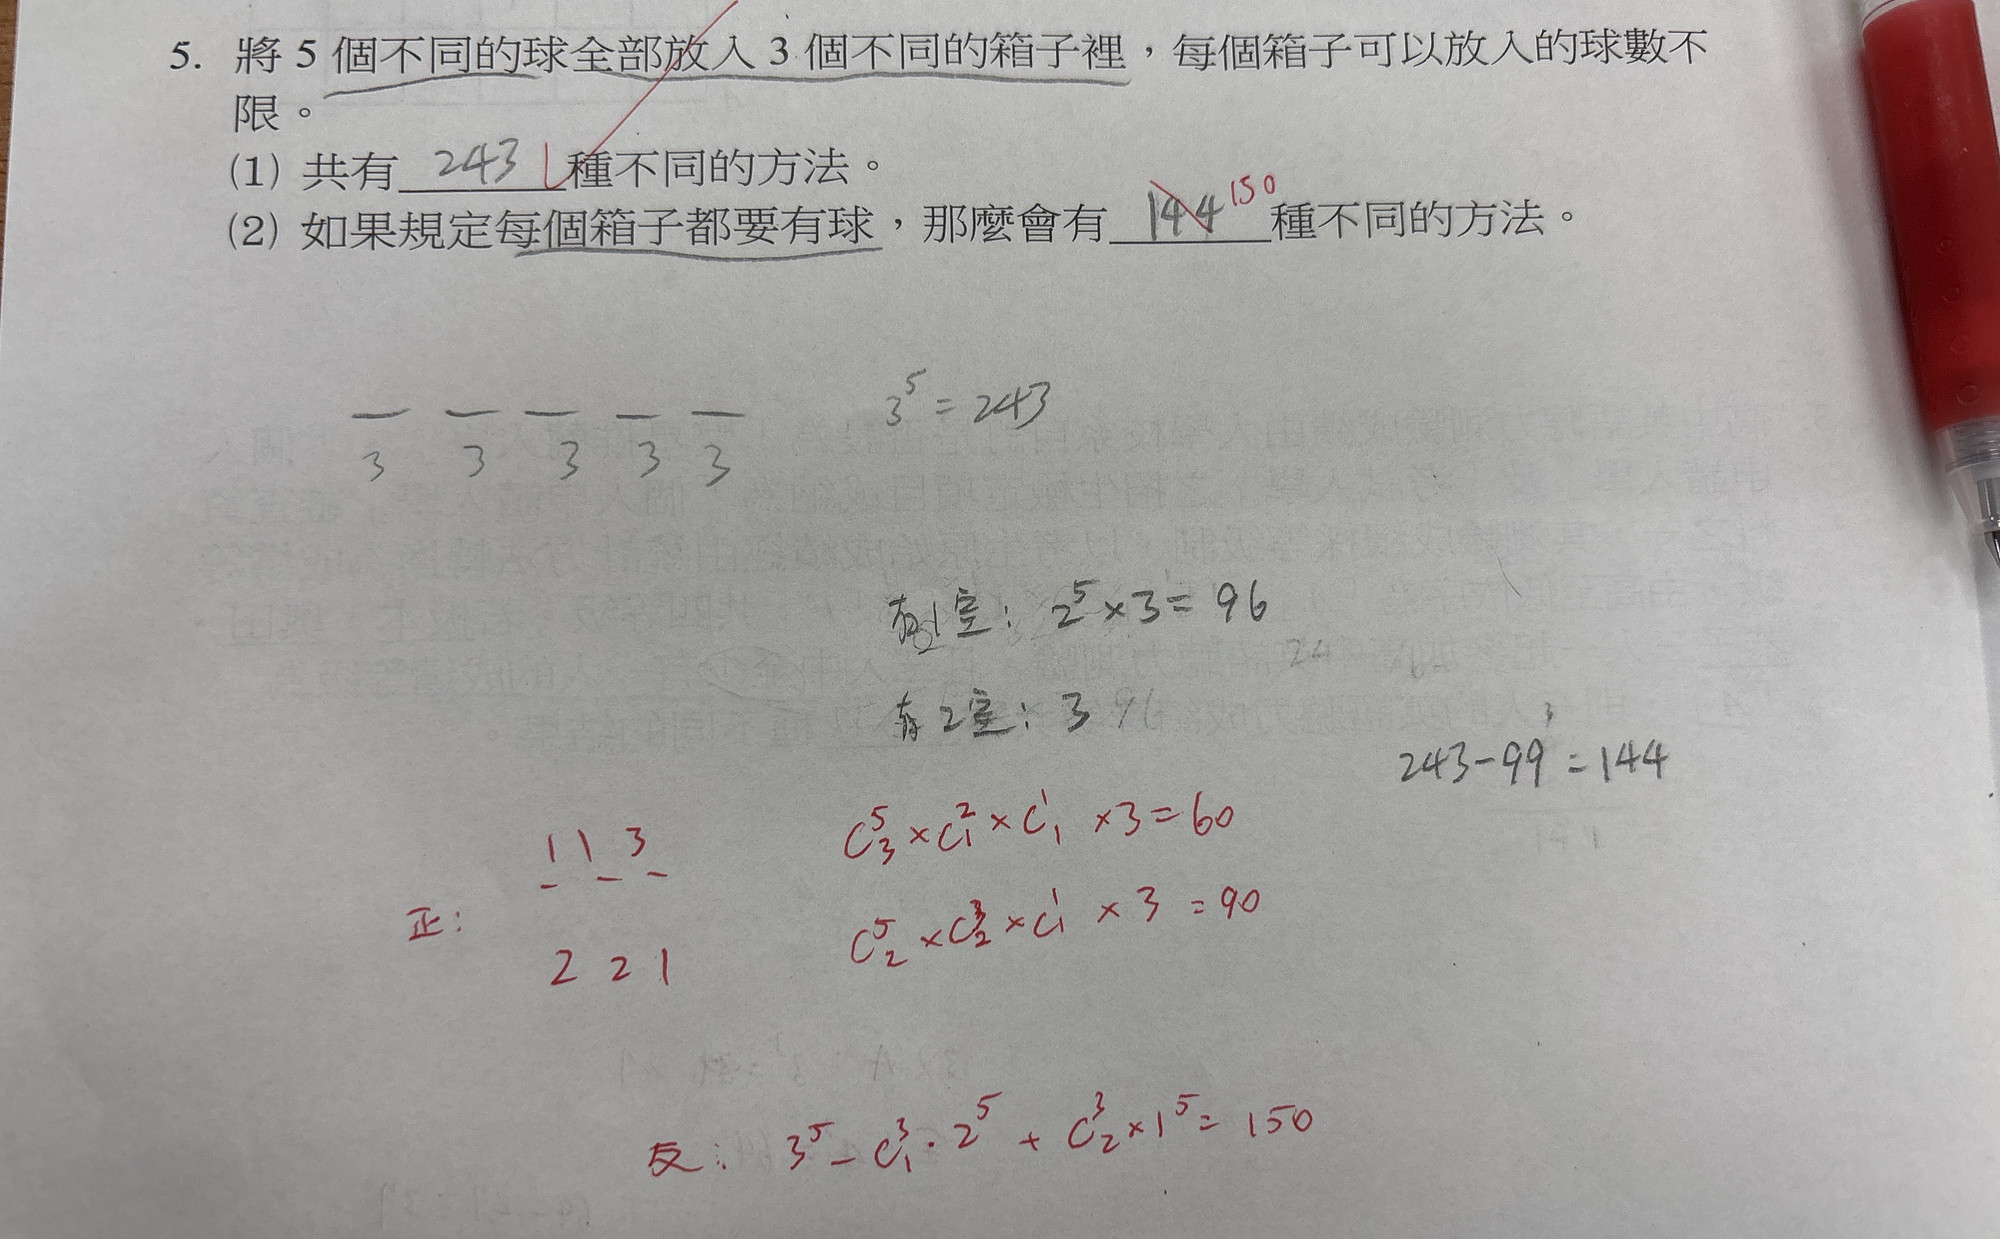 5. 將 5 個不同的球全部放入 3 個不同的箱子裡，每個箱子可以放入的球數不
限。
(1) 共有 243 種不同的方法。
(2) 如果規定每個箱子都要有球，那麼會有 144 150 種不同的方法。
3 3 3 3 3
3⁵ = 243
有1空： 2⁵×3 = 96
有2空： 3
243-99 = 144
正：
1 1 3
C⁵₃ × C²₁ × C¹₁ ×3 = 60
2 2 1
C⁵₂ × C³₂ × C¹₁ × 3 = 90
反： 3⁵ - C³₁ · 2⁵ + C³₂ × 1⁵ = 150